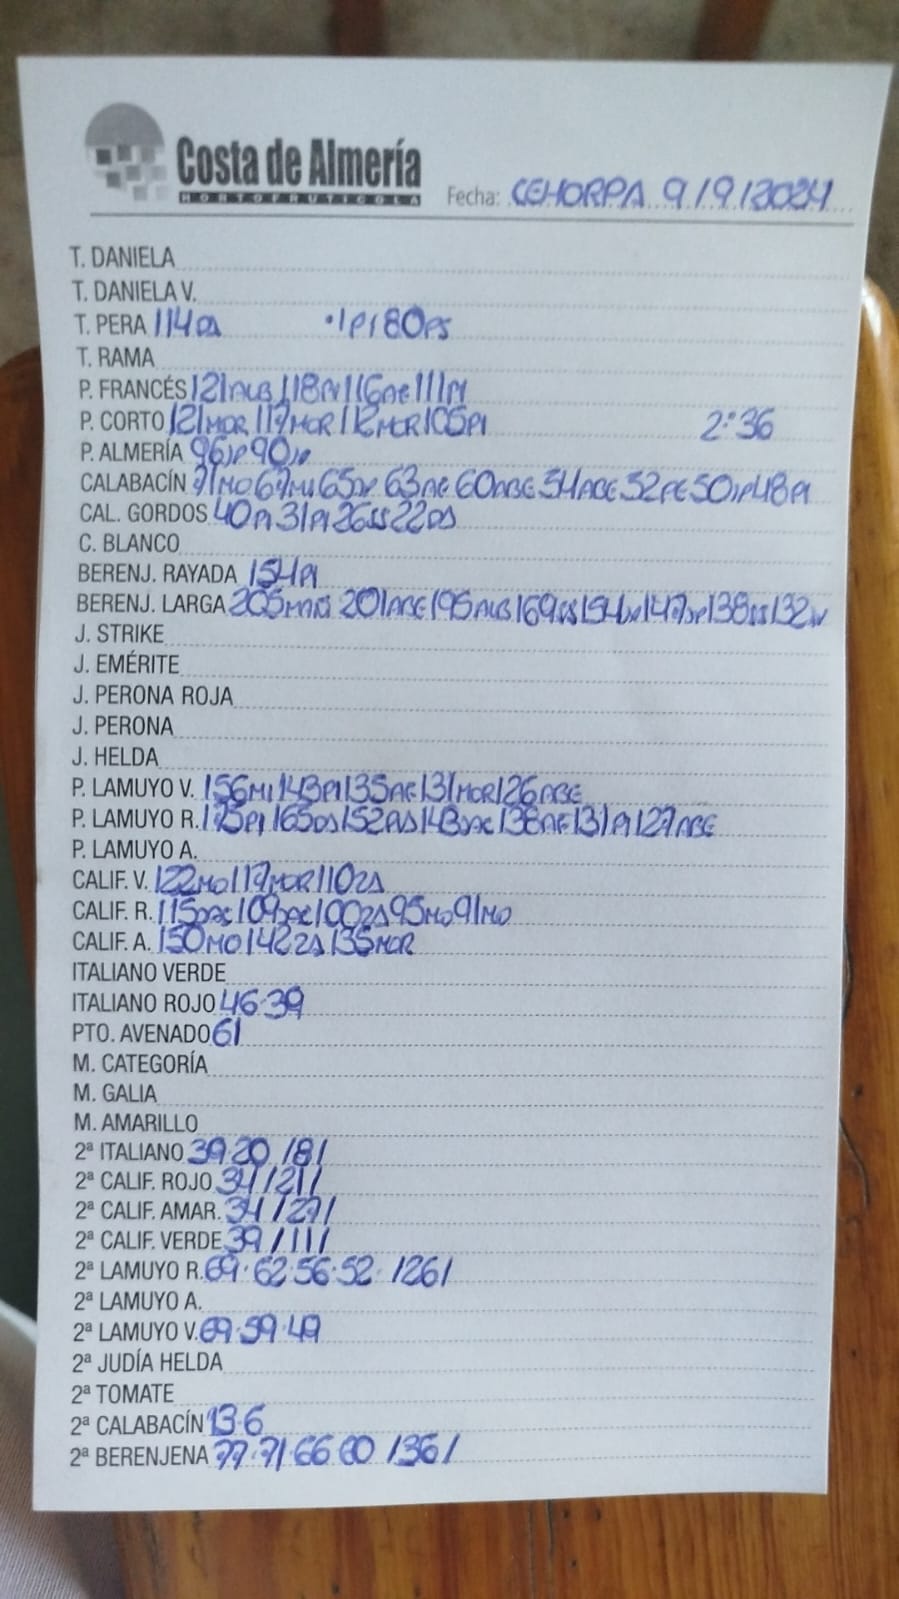 Costa de Almería
HORTOFRUTICOLA
Fecha: CEHORPA 9/9/2024
T. DANIELA
T. DANIELA V.
T. PERA 114DS ·1P180PS
T. RAMA
P. FRANCÉS 121ALB 118PI 116AE 111PI
P. CORTO 121MOR 117MOR 112MOR 105PI 2:36
P. ALMERÍA 96JP 90JP
CALABACÍN 71MO 67MI 65JP 63AE 60ABE 54ABE 52PE 50JP 48PI
CAL. GORDOS 40PI 31PI 26SS 22DS
C. BLANCO
BERENJ. RAYADA 154PI
BERENJ. LARGA 205 201ABE 195ALB 169SS 154 147JP 138SS 132
J. STRIKE
J. EMÉRITE
J. PERONA ROJA
J. PERONA
J. HELDA
P. LAMUYO V. 156MI 143PI 135AE 131MOR 126ABE
P. LAMUYO R. 175PI 165DS 152 143 138AE 131PI 127ABE
P. LAMUYO A.
CALIF. V. 122MO 117MOR 110ZA
CALIF. R. 115 109 100ZA 95MO 91MO
CALIF. A. 150MO 142ZA 135MOR
ITALIANO VERDE
ITALIANO ROJO 46·39
PTO. AVENADO 61
M. CATEGORÍA
M. GALIA
M. AMARILLO
2ª ITALIANO 39·20 /8/
2ª CALIF. ROJO 34 /21/
2ª CALIF. AMAR. 34 /27/
2ª CALIF. VERDE 39 /11/
2ª LAMUYO R. 69·62·56·52· /26/
2ª LAMUYO A.
2ª LAMUYO V. 69·59·49
2ª JUDÍA HELDA
2ª TOMATE
2ª CALABACÍN 13·6
2ª BERENJENA 77·71·66·60 /36/